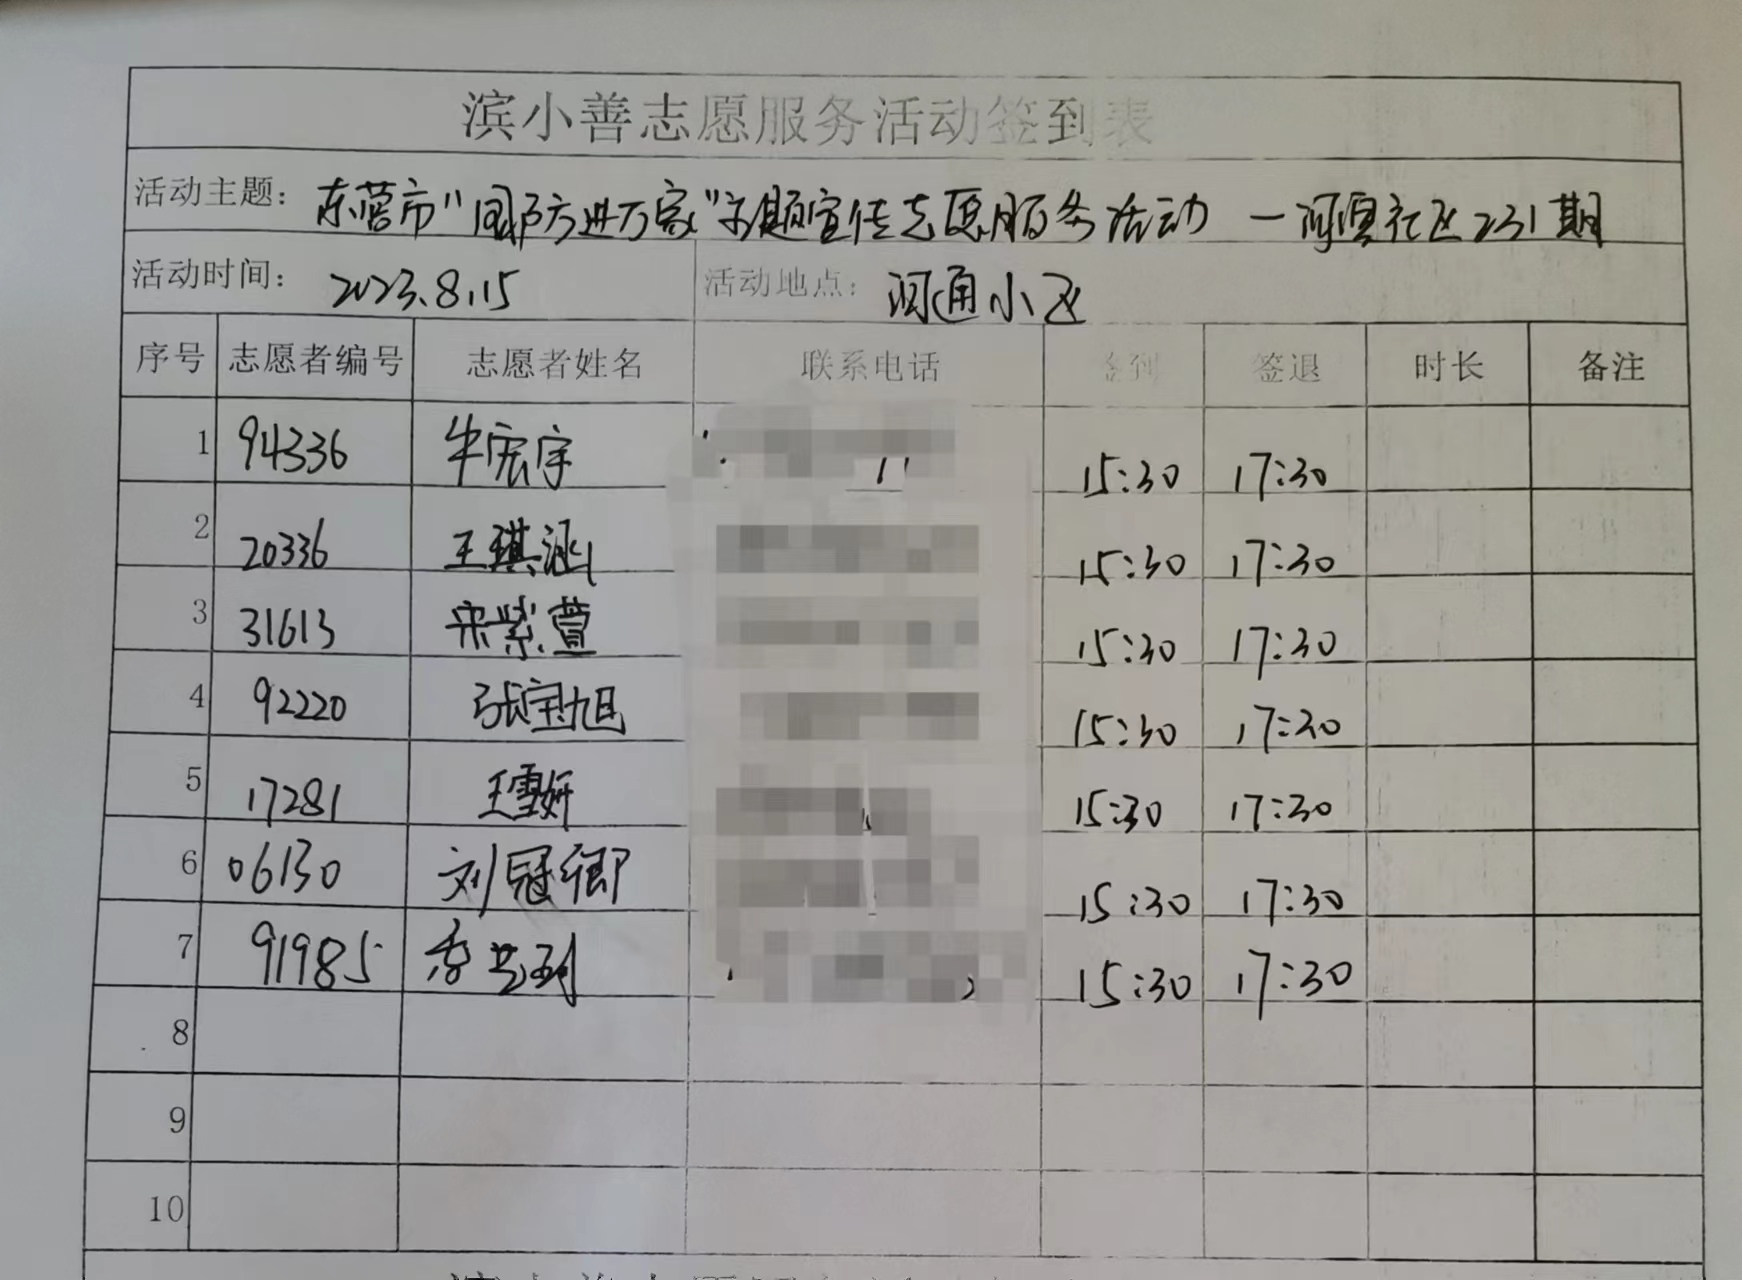 滨小善志愿服务活动签到表
活动主题：东营市"国防进万家"主题宣传志愿服务活动 一河滨社区231期
活动时间：2023.8.15 活动地点：河通小区
序号 志愿者编号 志愿者姓名 联系电话 签到 签退 时长 备注
1 94336 牛宏宇 15:30 17:30
2 20336 王琪涵 15:30 17:30
3 31613 宋紫萱 15:30 17:30
4 92220 张宝旭 15:30 17:30
5 17281 王雪妍 15:30 17:30
6 06130 刘冠卿 15:30 17:30
7 91985 15:30 17:30
8
9
10